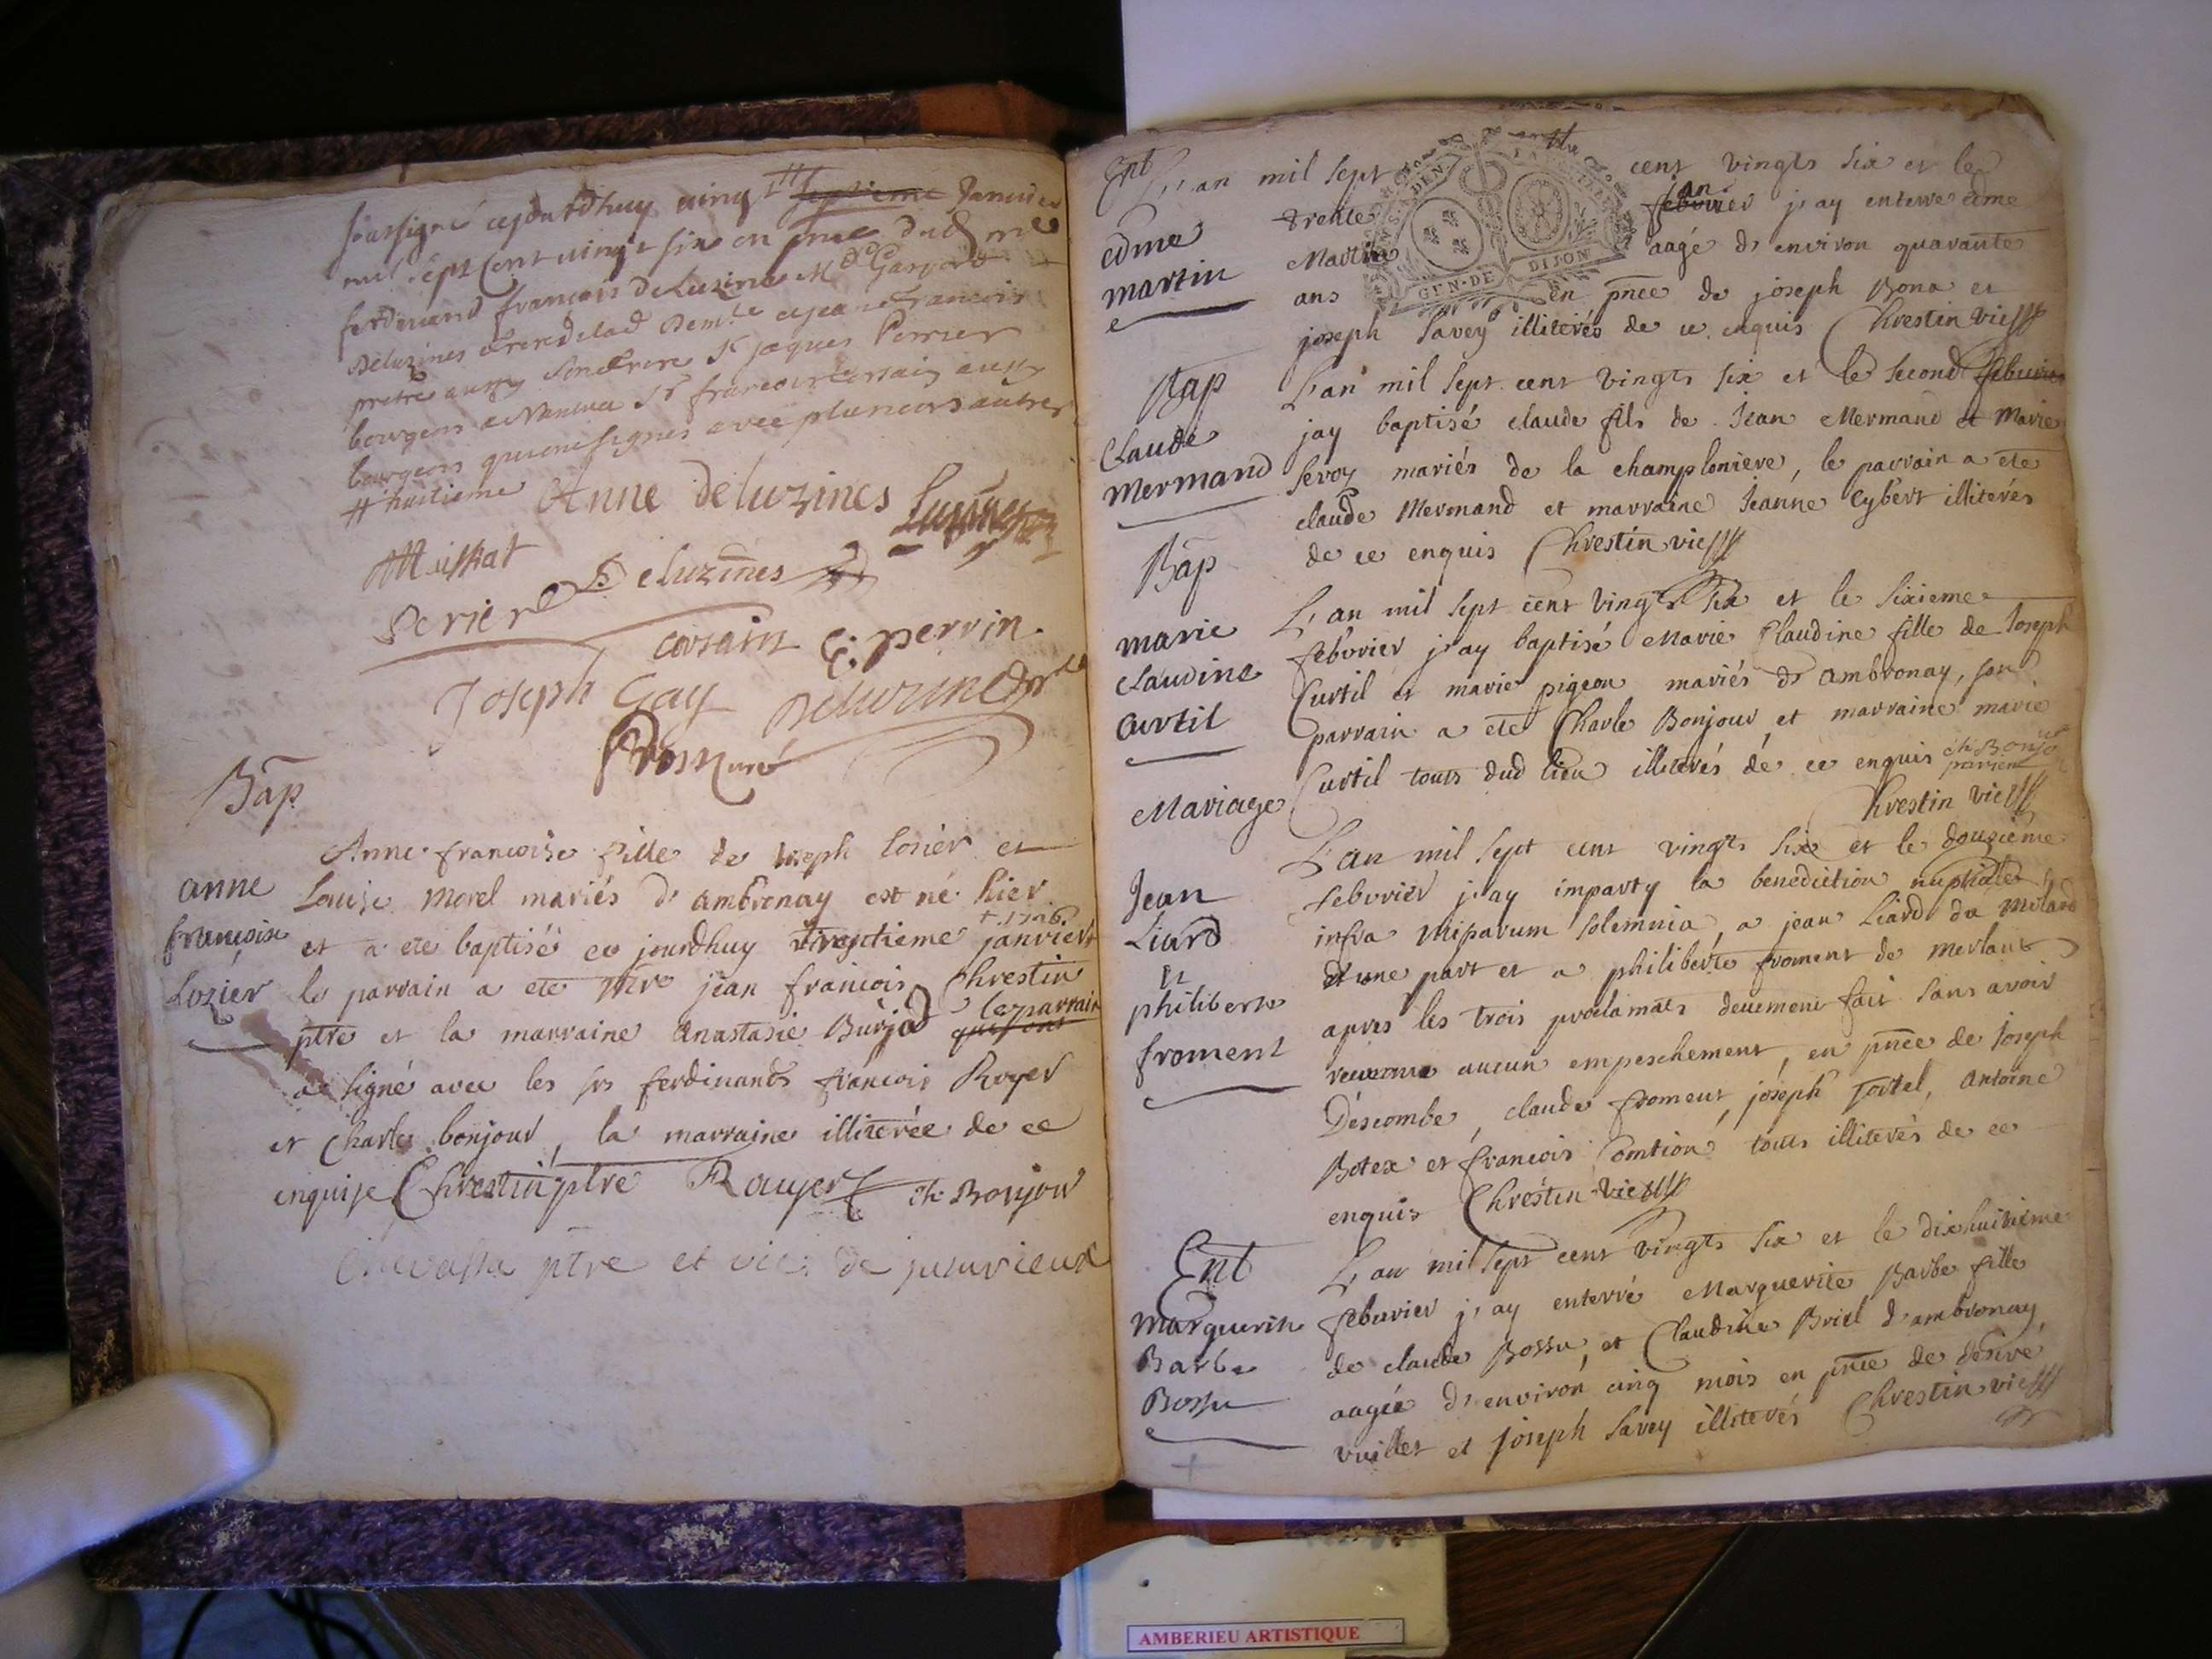 soussigné cejourdhuy ving # septieme Janvier
mil sept cent vingt six en pnce dud mre
ferdinand françois Deluzines Md Gaspard
Deluzines frere delad Demlle et jean francois
pretre aussy Son frere Sr jaques Perrier
bourgeois a Nantua Sr francois Corsain aussy
bourgeois qui ont signés avec plusieurs autres
# huitieme
Anne deluzines
Perier
Deluzines
corsain
C: perrin
Joseph Gay
Bap
Anne francoise fille de joseph losier et
Louise Morel mariés d'ambronay est né hier
et a ete baptisée ce jourdhuy trentieme janvier
+ 1726
le parrain a ete Mre jean francois Chrestin
ptre et la marraine anastasie Burjod qui ont
le parrain
a signé avec les srs ferdinands francois Royer
et Charles bonjour, la marraine illiterée de ce
enquise Chrestin ptre Rouyer ch Bonjour
ptre et vic: de jujurieux
anne
francoise
Lozier
GEN·DE DIJON
Ent
L'an mil sept cent vingts six et le
trente febvrier j'ay enterre edme
an
Martin aagé d'environ quarante
ans en pnce de joseph Bona et
joseph Savey illiterés de ce enquis Chrestin vic
edme
martin
Bap
L'an mil sept cent vingts six et le second febvrier
jay baptisé claude fils de Jean Mermand et Marie
Sevoz mariés de la champloniere, le parrain a ete
claude Mermand et marraine Jeanne Cybert illiterés
de ce enquis Chrestin vic
Claude
Mermand
Bap
L'an mil sept cent vingts six et le sixieme
febvrier j'ay baptisé Marie Claudine fille de Joseph
Curtil et marie pigeon mariés d'ambronay, son
parrain a ete Charle Bonjour et marraine marie
Curtil touts dud lieu illiterés de ce enquis ch Bonjour
parrein
Chrestin vic
marie
claudine
curtil
Mariage
L'an mil sept cent vingts six et le douzieme
febvrier j'ay imparty la benediction nuptiale
infra missarum solemnia, a jean Liard du Molard
d'une part et a philiberte froment de merland
apres les trois proclamats deuement fait sans avoir
reconnu aucun empeschement, en pnce de Joseph
Descombe, claude froment, joseph Tortel, antoine
Botex et francois Comtion touts illiterés de ce
enquis Chrestin vic
Jean
Liard
et
philiberte
froment
Ent
L'an mil sept cent vingts six et le dixhuitieme
febvrier j'ay enterré Marguerite Barbe fille
de claude Bossu, et Claudine Briel d'ambronay,
aagée d'environ cinq mois en pnce de desiré
vuillet et joseph Savey illiterés Chrestin vic
Marguerite
Barbe
Bossu
AMBERIEU ARTISTIQUE